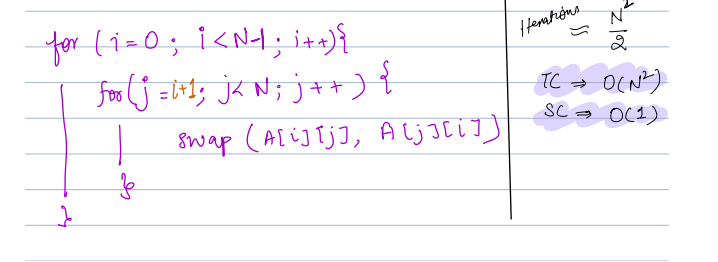 for ( i = 0 ; i < N-1 ; i++){
for ( j = i+1; j < N ; j++ ) {
swap ( A[i][j], A[j][i] )
}
}
Iterations ≈ N²/2
TC ⇒ O(N²)
SC ⇒ O(1)